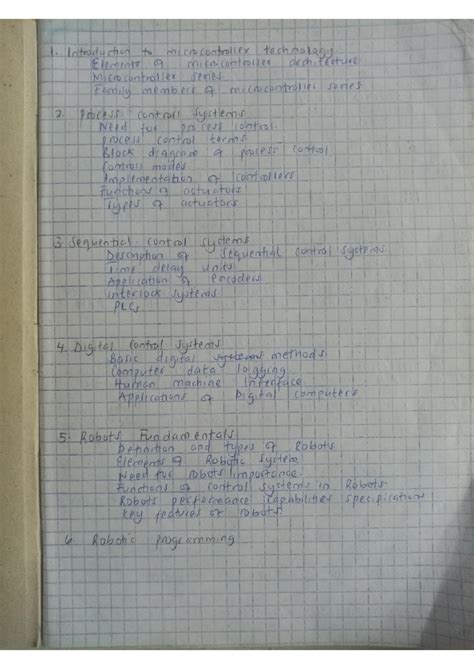 1. Introduction to microcontroller technology
Elements of microcontroller architecture
Microcontroller series
Family members of microcontroller series
2. Process controll systems
Need for process control.
process control terms
Block diagram of process control
Controll modes
Implementation of controllers
Functions of actuators
Types of actuators
3. Sequential control systems
Description of Sequential control systems.
Time delay units
Application of encoders
Interlock systems
PLCs
4. Digital control systems
Basic digital systems methods
Computer data logging
Human machine interface
Applications of Digital computers
5. Robots Fundamentals
Definition and types of Robots
Elements of Robotic system
Need for robots importance.
Functions of control systems in Robots
Robots performance capabilities specifications
Key features of robots.
6. Robotic programming